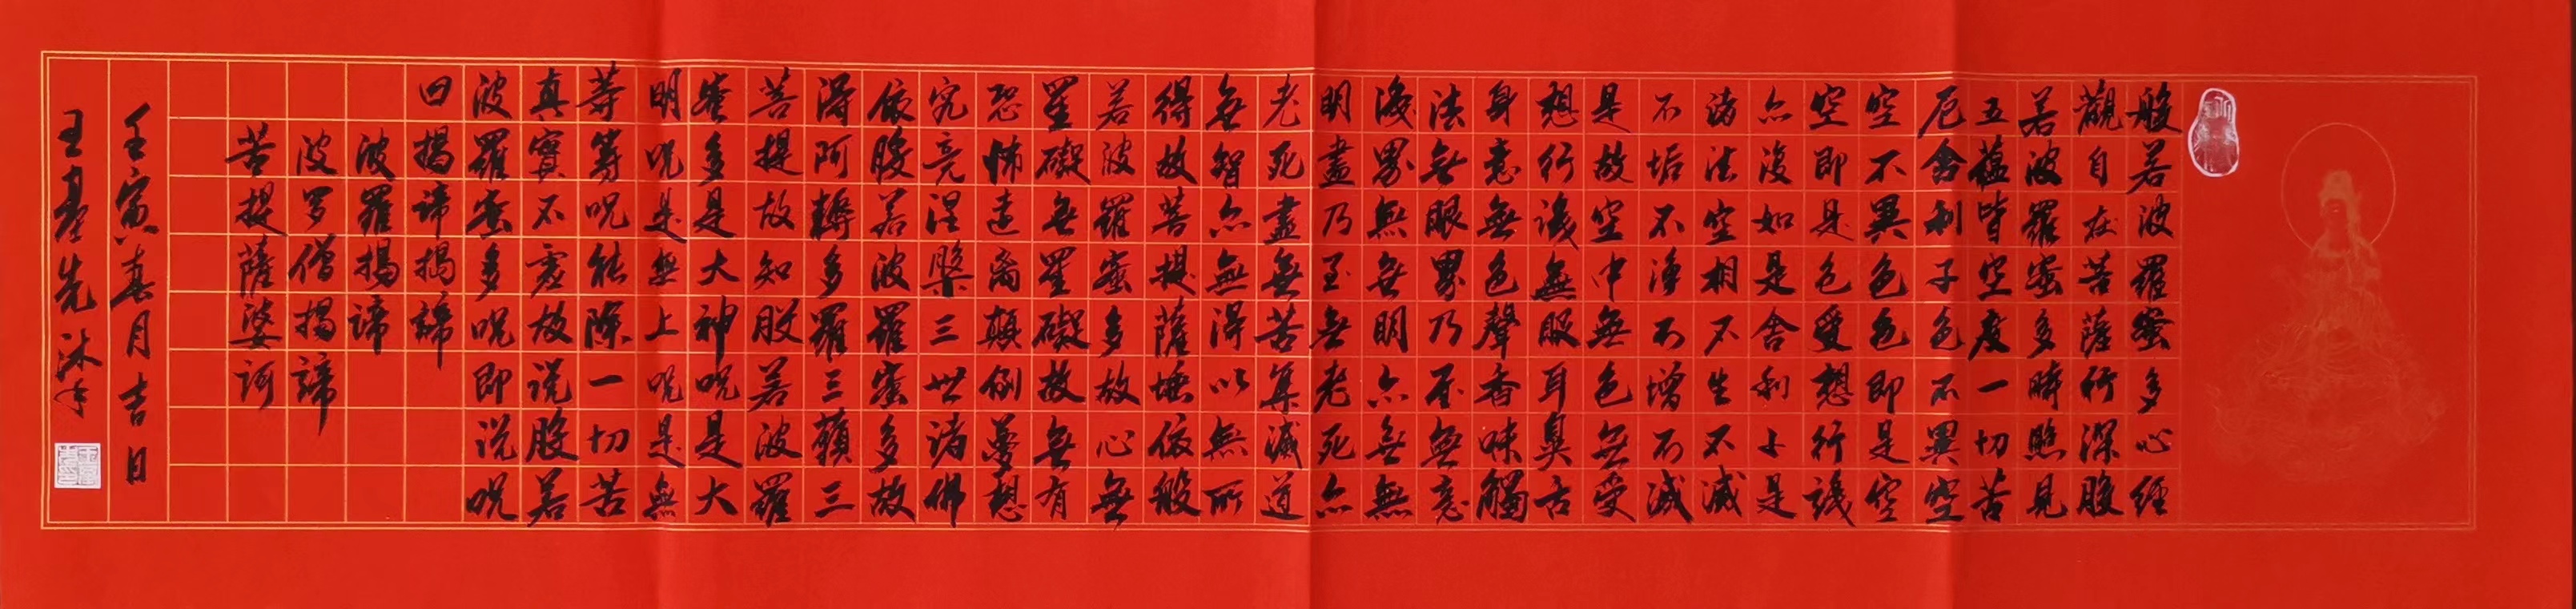 般若波羅蜜多心經
觀自在菩薩行深般
若波羅蜜多時照見
五蘊皆空度一切苦
厄舍利子色不異空
空不異色色即是空
空即是色受想行識
亦復如是舍利子是
諸法空相不生不滅
不垢不淨不增不減
是故空中無色無受
想行識無眼耳鼻舌
身意無色聲香味觸
法無眼界乃至無意
識界無無明亦無無
明盡乃至無老死亦
老死盡無苦集滅道
無智亦無得以無所
得故菩提薩埵依般
若波羅蜜多故心無
罣礙無罣礙故無有
恐怖遠離顛倒夢想
究竟涅槃三世諸佛
依般若波羅蜜多故
得阿耨多羅三藐三
菩提故知般若波羅
蜜多是大神咒是大
明咒是無上咒是無
等等咒能除一切苦
真實不虛故說般若
波羅蜜多咒即說咒
曰揭諦揭諦
波羅揭諦
波罗僧揭諦
菩提薩婆訶
壬寅春月吉日
王先沐手